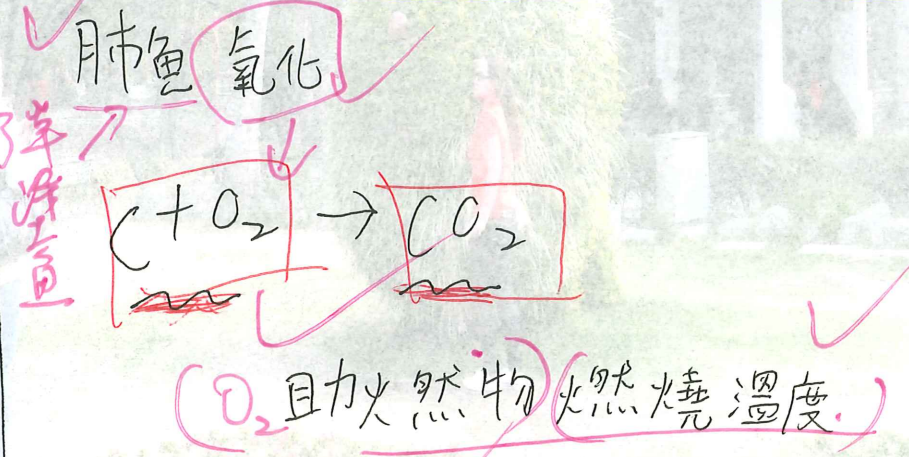 肺魚 氧化
彈塗魚
C + O₂ → CO₂
(O₂助燃物)(燃燒溫度.)